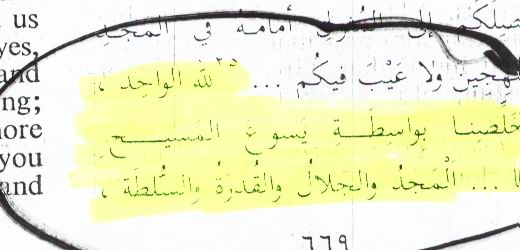 us
yes,
and
ng;
nore
you
and
إلى المُثولِ أمامَهُ في المجدِ
ولا عَيْبَ فيكُم ... ٢٥ للهِ الواحِدِ ،
خَلِّصِنا بِواسِطَةِ يَسوعَ المَسيحِ
... الْمَجدُ والجَلالُ والقُدرَةُ والسُّلطَة ،
٦٦٩